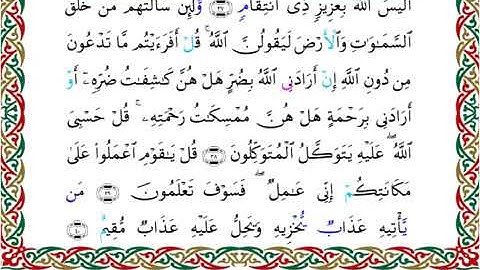 أَلَيْسَ ٱللَّهُ بِعَزِيزٍ ذِى ٱنتِقَامٍ ۝٣٧ وَلَئِن سَأَلْتَهُم مَّنْ خَلَقَ
ٱلسَّمَـٰوَٰتِ وَٱلْأَرْضَ لَيَقُولُنَّ ٱللَّهُ ۚ قُلْ أَفَرَءَيْتُم مَّا تَدْعُونَ
مِن دُونِ ٱللَّهِ إِنْ أَرَادَنِىَ ٱللَّهُ بِضُرٍّ هَلْ هُنَّ كَـٰشِفَـٰتُ ضُرِّهِۦٓ أَوْ
أَرَادَنِى بِرَحْمَةٍ هَلْ هُنَّ مُمْسِكَـٰتُ رَحْمَتِهِۦ ۚ قُلْ حَسْبِىَ
ٱللَّهُ ۖ عَلَيْهِ يَتَوَكَّلُ ٱلْمُتَوَكِّلُونَ ۝٣٨ قُلْ يَـٰقَوْمِ ٱعْمَلُوا۟ عَلَىٰ
مَكَانَتِكُمْ إِنِّى عَـٰمِلٌ ۖ فَسَوْفَ تَعْلَمُونَ ۝٣٩ مَن
يَأْتِيهِ عَذَابٌ يُخْزِيهِ وَيَحِلُّ عَلَيْهِ عَذَابٌ مُّقِيمٌ ۝٤٠